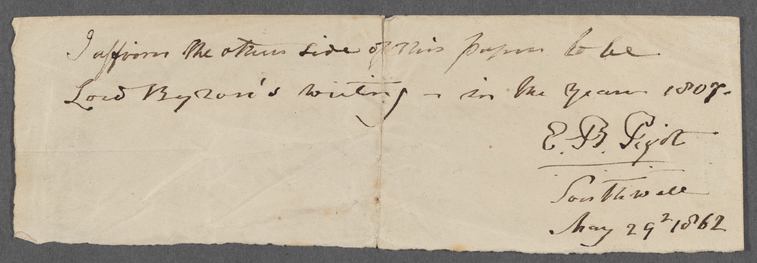 I affirm the other side of this paper to be
Lord Byron's writing - in the year 1807.
E. B. Pigot
Southwell
May 29 1862